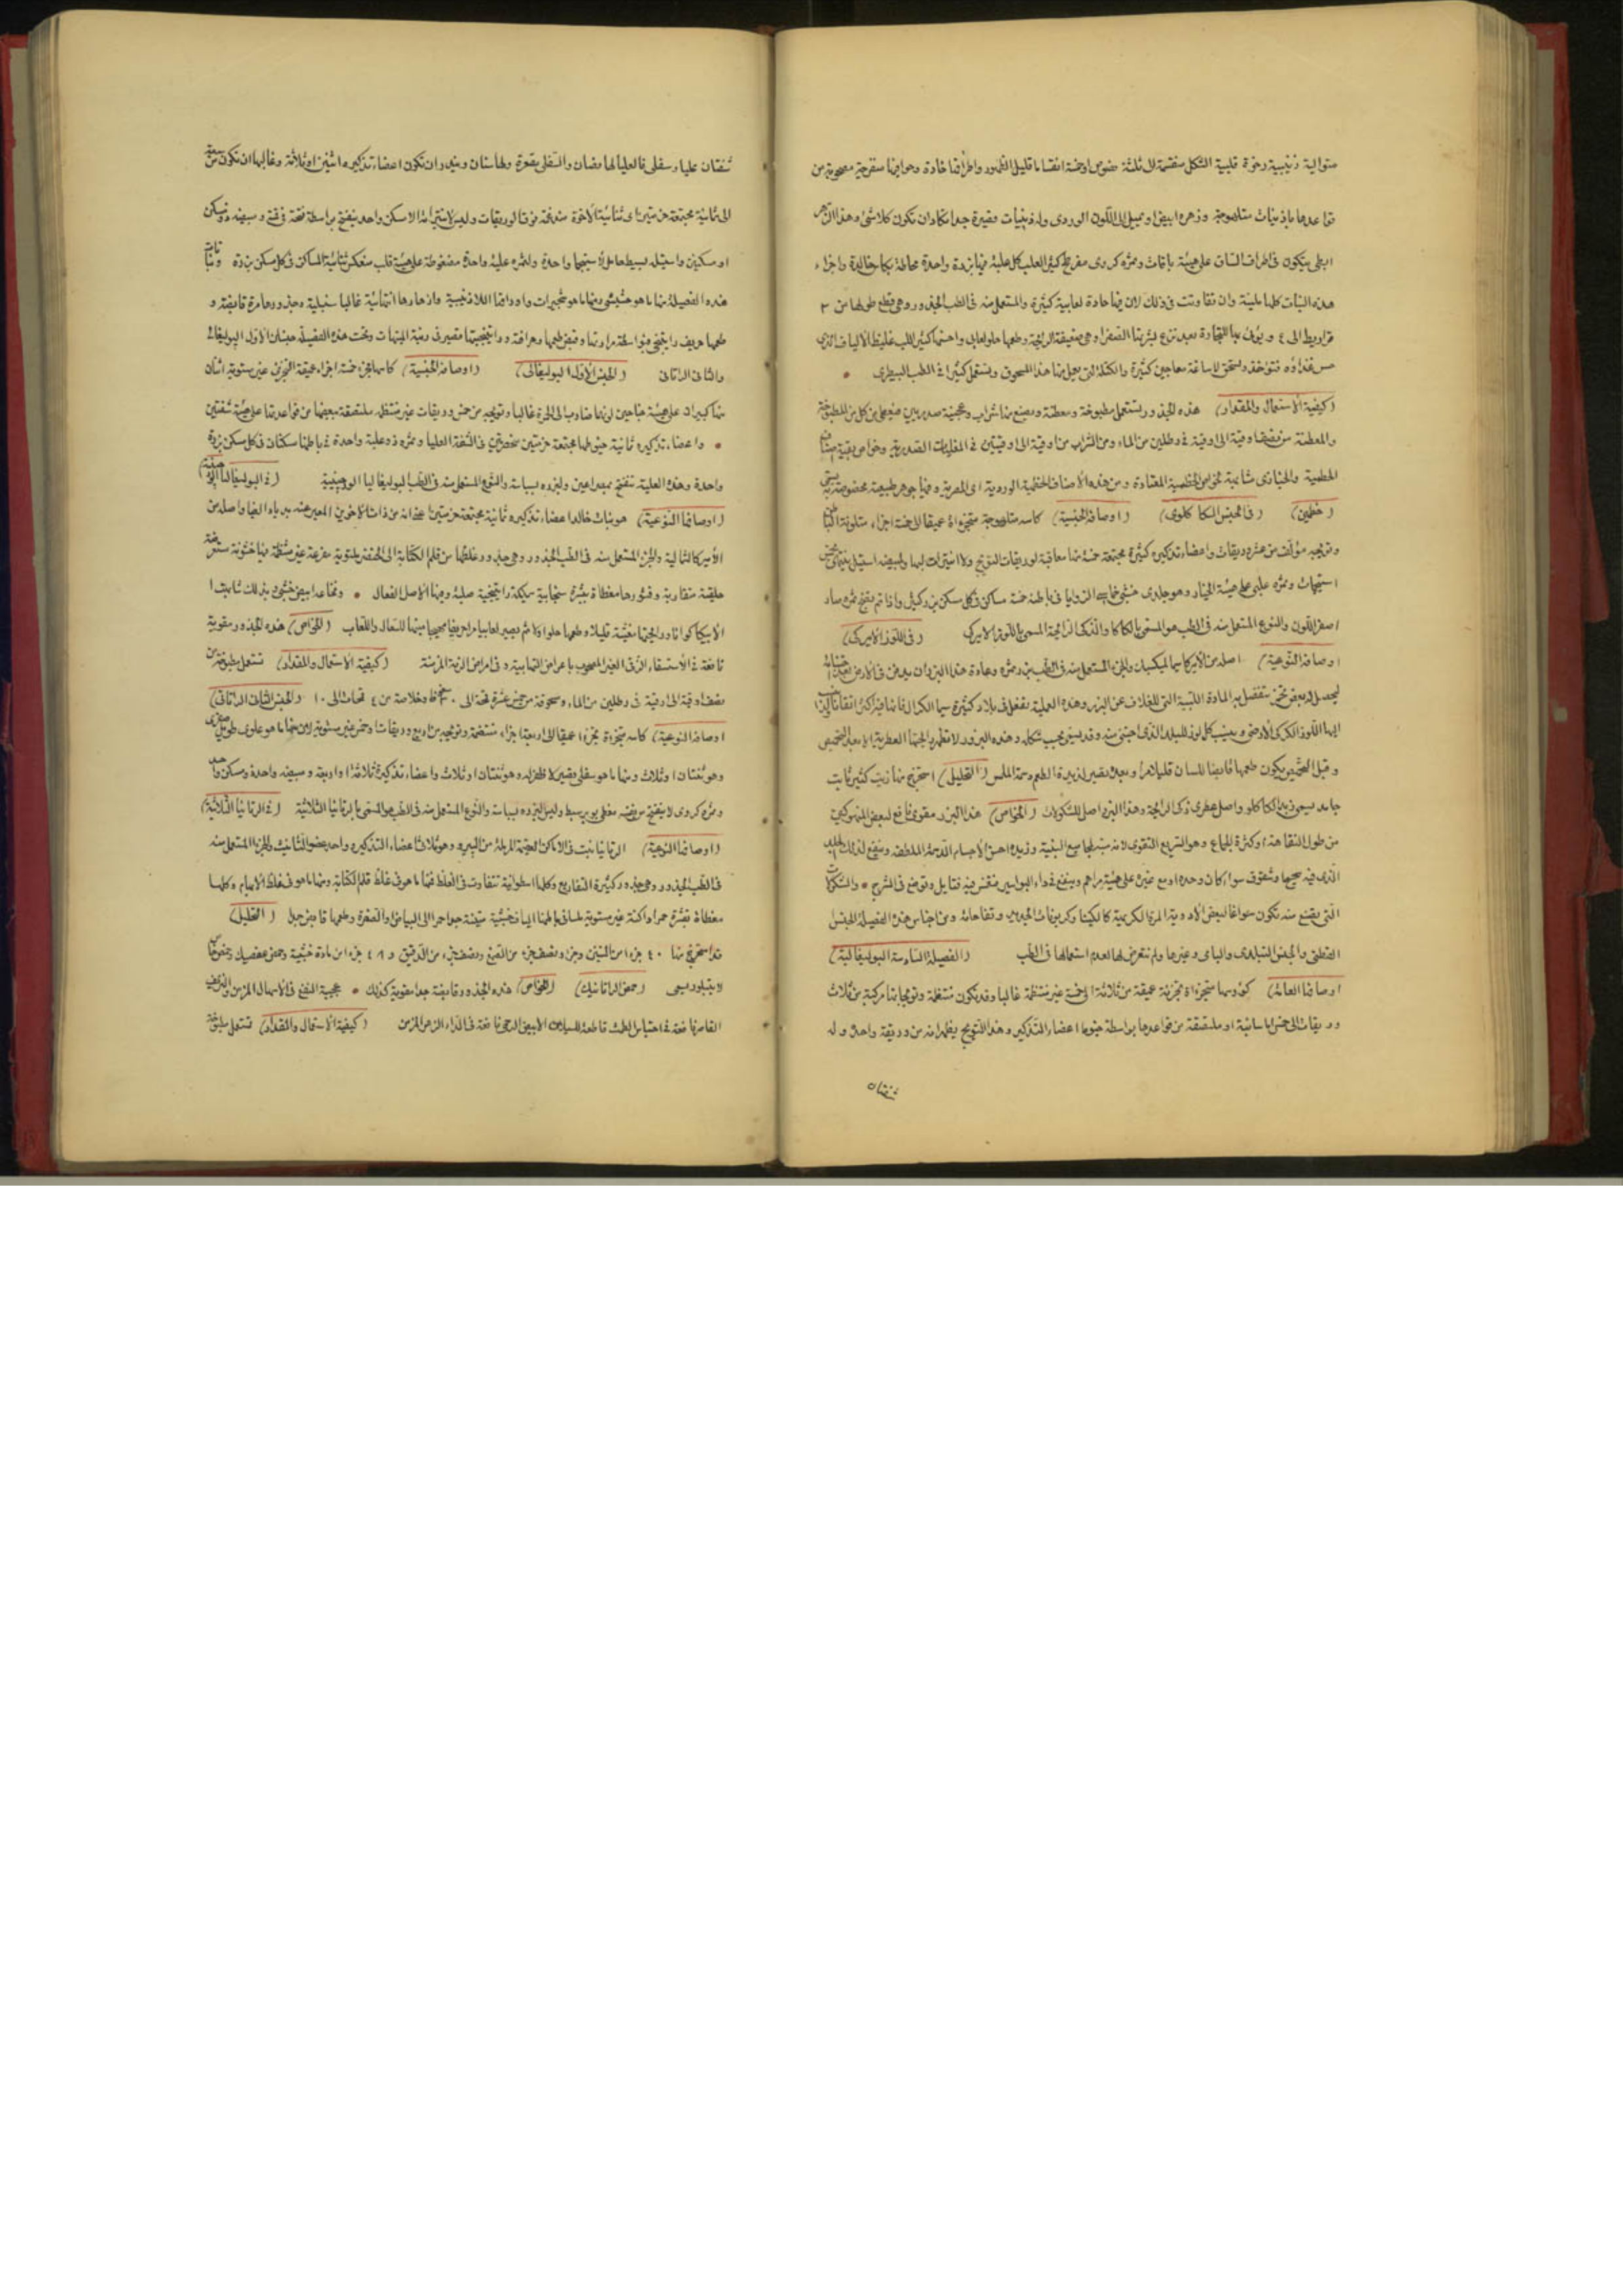 متوالية ذنيبية رخوة قلبية الشكل منقسمة الى ثلثة فصوص او خمسة انقساما قليل الظهور واطرافها حادة وحوافيها متفرجة مصحوبة من
قواعدها باذينات متلهوجة وزهره ابيض او يميل الى اللون الوردى وله ذنيبات قصيرة جدا تكاد ان تكون كلاشئ وهذا الزهر
ابطى يتكون فى اطراف الساق على هيئة باقات وثمره كروى مفرطح كثير العلب كل علبة فيها بزرة واحدة محاطة بكاس خالدة واجزاء
هذه النبات كلها ملينة وان تفاوتت فى ذلك لان فيها مادة لعابية كثيرة والمستعمل منه فى الطب الجذور وهى قطع طولها من ٣
قراريط الى ٤ ويؤتى بها للتجارة بعد نزع بشرتها الصفرا وهى ضعيفة الرايحة وطعمها حلو لعابى واحسنها كثير اللب غليظ الالياف الذى
حسن غذاؤه فتؤخذ وتسحق لاساغة معاجين كثيرة والكتلة التى يعمل منها هذا المسحوق وتستعمل كثيرا فى الطب البيطرى
(كيفية الاستعمال والمقدار) هذه الجذور تستعمل مطبوخة ومعطنة ويصنع منها شراب وعجينة صدريين فيعطى من كل من المطبوخة
والمعطنة من نصف اوقية الى اوقية فى رطلين من الماء ومن الشراب من اوقية الى اوقيتين فى المغليات الصدرية وخواص بقية اصناف
الخطمية والخبازى مشابهة لخواص الخطمية المعتادة ومن هذه الاصناف الخطمية الوردية اى المصرية وفيها جوهر طبيعته مخصوصة يسمى
(خطمين) (فى الجنس الكاكاوى) (اوصافه الجنسية) كاسه متلهوجة متجزءة عميقا لخمسة اجزاء متلونة الباطن
وتويجه مؤلف من عشر وريقات واعضاء تذكيره كثيرة مجتمعة خمسة منها معاقبة لوريقات التويج ولا انتيرات لها ولمبيضه استيل ينتهى بخمس
استيجمات وثمره علبى على هيئة الخيار وهو جلدى خشبى خماسى الزوايا فى باطنه خمسة مساكن فى كل مسكن بزر كثير واذا تم نضج ثمره صار
اصفر اللون والنوع المستعمل منه فى الطب هو المسمى بالكاكاو الذكى الرايحة المسمى باللوز الاميركى (فى اللوز الاميركى)
(اوصافه النوعية) اصله من الاميركا سيما المكسيك والجزء المستعمل منه فى الطب بزر ثمره وعادة هذا البزر ان يدفن فى الارض بعد اجتنائه
ليحصل له بعض تخمر تنفصل به المادة اللبية التى للغلاف عن البزر وهذه العملية تفعل فى بلاد كثيرة سيما الكراك
ايها اللوز الكركى الارضى وينسب كل لوز للبلد الذى اجتنى منه وقد يسمى بحسب شكله وهذه البزور لا تظهر رايحتها العطرية الا بعد التحميص
وقبل التحميص يكون طعمها قابضا للسان قليلا مرا وبعده يصير لذيذة الطعم دسمة الملمس (التحليل) استخرج منها زيت كثير ثابت
جامد يسمى زبد الكاكاو واصل عطرى ذكى الرايحة وهذا البزر اصل للشكولات (الخواص) هذا البزر مقوى نافع لبعض المنهوكين
من طول النقاهة او كثرة الجماع وهو السريع التقوى لانه منبه لجاميع البنية وزبده احسن الاجسام الدسمة الملطفة وينفع لذلك الجلد
الذى فيه سحج او شقوق سواء كان وحده او مع غيره على هيئة مراهم وينفع فى داء البواسير فتغمس فيه فتايل وتوضع فى الشرج والشكولات
التى يصنع منه تكون سواغا لبعض الادوية المرة الكريهة كالكينا وكربونات الحديد وتفاحاته ومن اجناس هذه الفصيلة الجنس
القطنى والجنس التيلدى والبامى وغيرها ولم نتعرض لها لعدم استعمالها فى الطب (الفصيلة السادسة البوليغالية)
(اوصافها العامة) كؤوسها متجزءة تجزية عميقة من ثلاثة الى خمسة غير منتظمة غالبا وقد تكون منتظمة وتويجاتها مركبة من ثلاث
وريقات الى خمس اما سائبة او ملتصقة من قواعدها بواسطة خيوط اعضاء التذكير وهذا التويج يظهر انه من وريقة واحدة وله
شفتان
شفتان عليا وسفلى فالعليا لها فصان والسفلى مقعرة ولها سنان ويندر ان تكون اعضاء تذكيره اثنين او ثلاثة وغالبها ان تكون من سبعة
الى ثمانية مجتمعة حزمتين اى ثنائية الاخوة مندغمة فى الوريقات وليس لانتيراته الا مسكن واحد ينفتح بواسطة فتحة فى قمته ومبيضه ذو مسكن
او مسكنين واستيله بسيط حامل لاستيجما واحدة ولثمره علبة واحدة مضغوطة على هيئة قلب منعكس ثنائية المساكن فى كل مسكن بزرة ونباتات
هذه الفصيلة منها ما هو حشيشى ومنها ما هو شجيرات واوراقها اللاذنيبية وازهارها انتهائية غالبا سنبلية وجذورها مرة قابضة و
طعمها حريف راتينجى بواسطة مرارتها وقبض طعمها وحرافته وراتينجيتها فتصير فى رتبة المنبهات وتحت هذه الفصيلة جنسان الاول البوليغالى
والثانى الراتانى (الجنس الاول البوليغالى) (اوصافه الجنسية) كاسها متجزء خمسة اجزاء عميقة التجزى غير مستوية اثنان
منها كبيران على هيئة جناحين لونهما ضارب الى الحمرة غالبا وتويجه من خمس وريقات غير منتظمة ملتصقة بعضها من قواعدها على هيئة شفتين
واعضاء تذكيره ثمانية خيوطها مجتمعة حزمتين محصورتين فى الشفة العليا وثمره ذو علبة واحدة فى باطنها مسكنان فى كل مسكن بزرة
واحدة وهذه العلبة تنفتح بمصراعين وليزره بسباسة والنوع المستعمل منه فى الطب البوليغاليا الورجينية (فى البوليغاليا الورجينية)
(اوصافها النوعية) هو نبات خالد اعضاء تذكيره ثمانية مجتمعة حزمتين
الاميركا الشمالية والجزء المستعمل منه فى الطب الجذور وهى جذور غلظها من قلم الكتابة الى الخنصر ملتوية متفرعة غير منتظمة فيها خشونة
حلقية متقاربة وقشورها مغطاة ببشرة سنجابية سميكة راتينجية صلبة وفيها الاصل الفعال وقاعدها ابيض خشبى
الايبيكاكوانا ورايحتها مغثية قليلا وطعمها حلو اولا ثم يصير لعابيا مرا حريفا مهيجا منبها للسعال واللعاب (الخواص) هذه الجذور مقوية
نافعة فى الاستسقاء الزقى الغير المصحوب باعراض التهابية وفى امراض الرية المزمنة (كيفية الاستعمال والمقدار) تستعمل مطبوخة من
نصف اوقية الى اوقية فى رطلين من الماء ومسحوقة من خمس عشرة قمحة الى ٣٠ وخلاصة من ٤ قمحات الى ١٠ (الجنس الثانى الراتانى)
(اوصافه النوعية) كاسه متجزءة تجزءا عميقا الى اربعة اجزاء منتفخة وتويجه من اربع وريقات او خمس غير مستوية لان منها ما هو علوى طويل
وهو ثنتان او ثلاث ومنها ما هو سفلى قصير لا ظفر له وهو ثنتان او ثلاث واعضاء تذكيره ثلاثة او اربعة ومبيضه واحدة ومسكن واحد
وثمره كروى لا ينفتح من نفسه مغطى بوبر بسيط وليس لبزره بسباسة والنوع المستعمل منه فى الطب هو المسمى بالراتانيا الثلاثية (فى الراتانيا الثلاثية)
(اوصافها النوعية) الراتانيا تنبت فى الاماكن العقيمة الرملة من البيرو وهو ثلاث اعضاء التذكير واحد عضو التانيث والجزء المستعمل منه
فى الطب الجذور وهى جذور كثيرة التفاريع وكلها اسطوانية تتفاوت فى الغلظ فمنها ما هو فى غلظ قلم الكتابة ومنها ما هو فى غلظ الابهام وكلها
مغطاة بقشرة حمراء داكنة غير مستوية ملساء فى باطنها الياف خشبية متينة جدا حمرا الى البياض او الصفرة وطعمها قابض جدا (التحليل)
قد استخرج منها ٤٠ جزءا من التنين وجزء ونصف جزء من الصمغ ونصف جزء من الدقيق و ٤٨ جزء من مادة خشبية وحمض عفصيك وحمض
لا يتبلور يسمى (حمض الراتانيك) (الخواص) هذه الجذور قابضة جدا مقوية كذلك عجيبة النفع فى الاسهال المزمن والنزيف
القاصر نافعة فى احتباس الطمث قاطعة للسيلان الابيض المهبلى نافعة فى الداء الزهرى المزمن (كيفية الاستعمال والمقدار) تستعمل مطبوخة